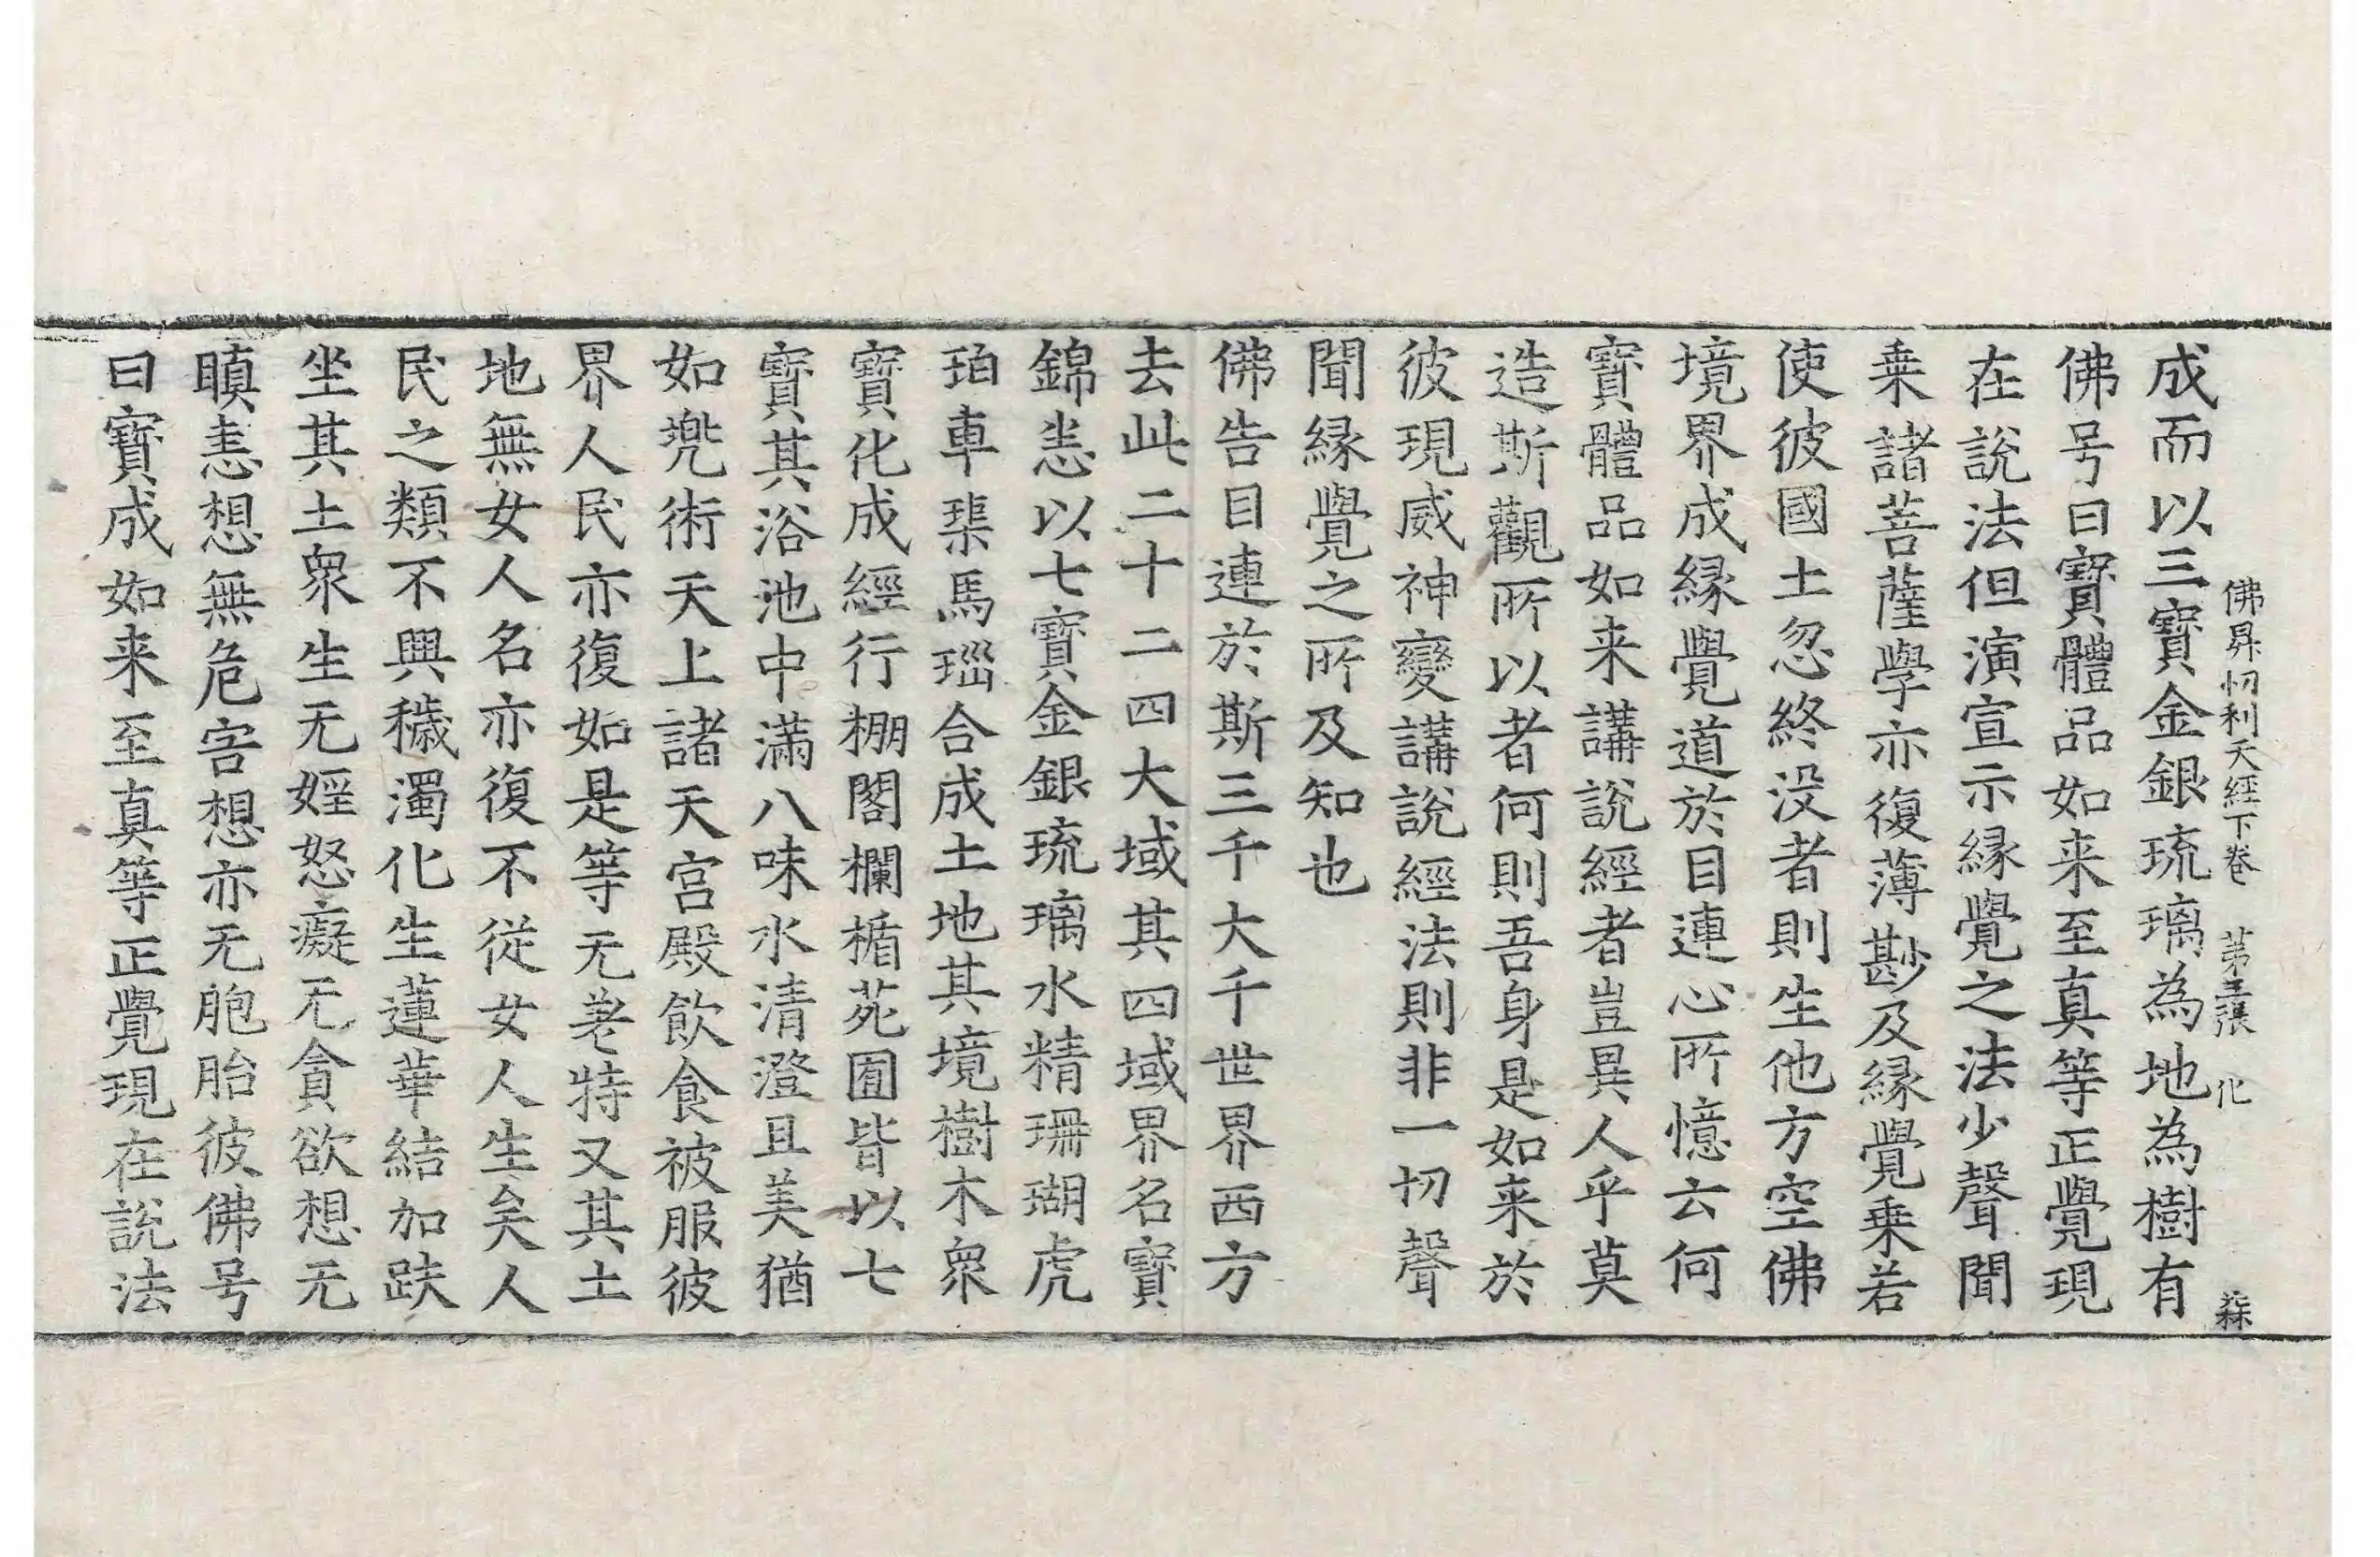 佛昇忉利天經下卷 第三張 化 森
成而以三寶金銀琉璃為地為樹有
佛号曰寶體品如来至真等正覺現
在說法但演宣示縁覺之法少聲聞
乗諸菩薩學亦復薄尠及縁覺乗若
使彼國土忽終没者則生他方空佛
境界成縁覺道於目連心所憶云何
寶體品如来講說經者豈異人乎莫
造斯觀所以者何則吾身是如来於
彼現威神變講說經法則非一切聲
聞縁覺之所及知也
佛告目連於斯三千大千世界西方
去此二十二四大域其四域界名寶
錦恙以七寶金銀琉璃水精珊瑚虎
珀車璖馬瑙合成土地其境樹木衆
寶化成經行棚閣欄楯苑囿皆以七
寶其浴池中滿八味水清澄且美猶
如兠術天上諸天宮殿飲食被服彼
界人民亦復如是等无荖特又其土
地無女人名亦復不從女人生矣人
民之類不興穢濁化生蓮華結加趺
坐其土衆生无婬怒癡无貪欲想无
瞋恚想無危害想亦无胞胎彼佛号
曰寶成如来至真等正覺現在說法